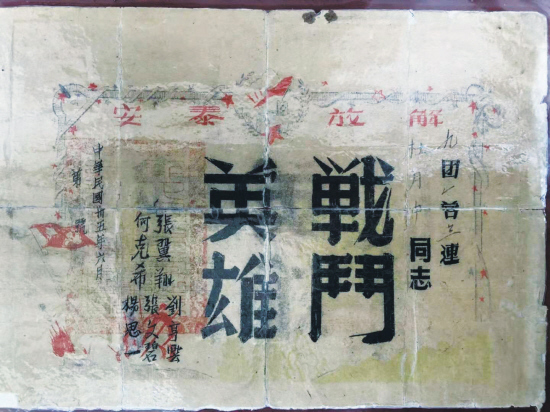 解放泰安
九团一营三連
同志
戦鬥
英雄
張翼翔
何克希
劉亨雲
張文碧
楊思一
中華民國卅五年六月
第 號